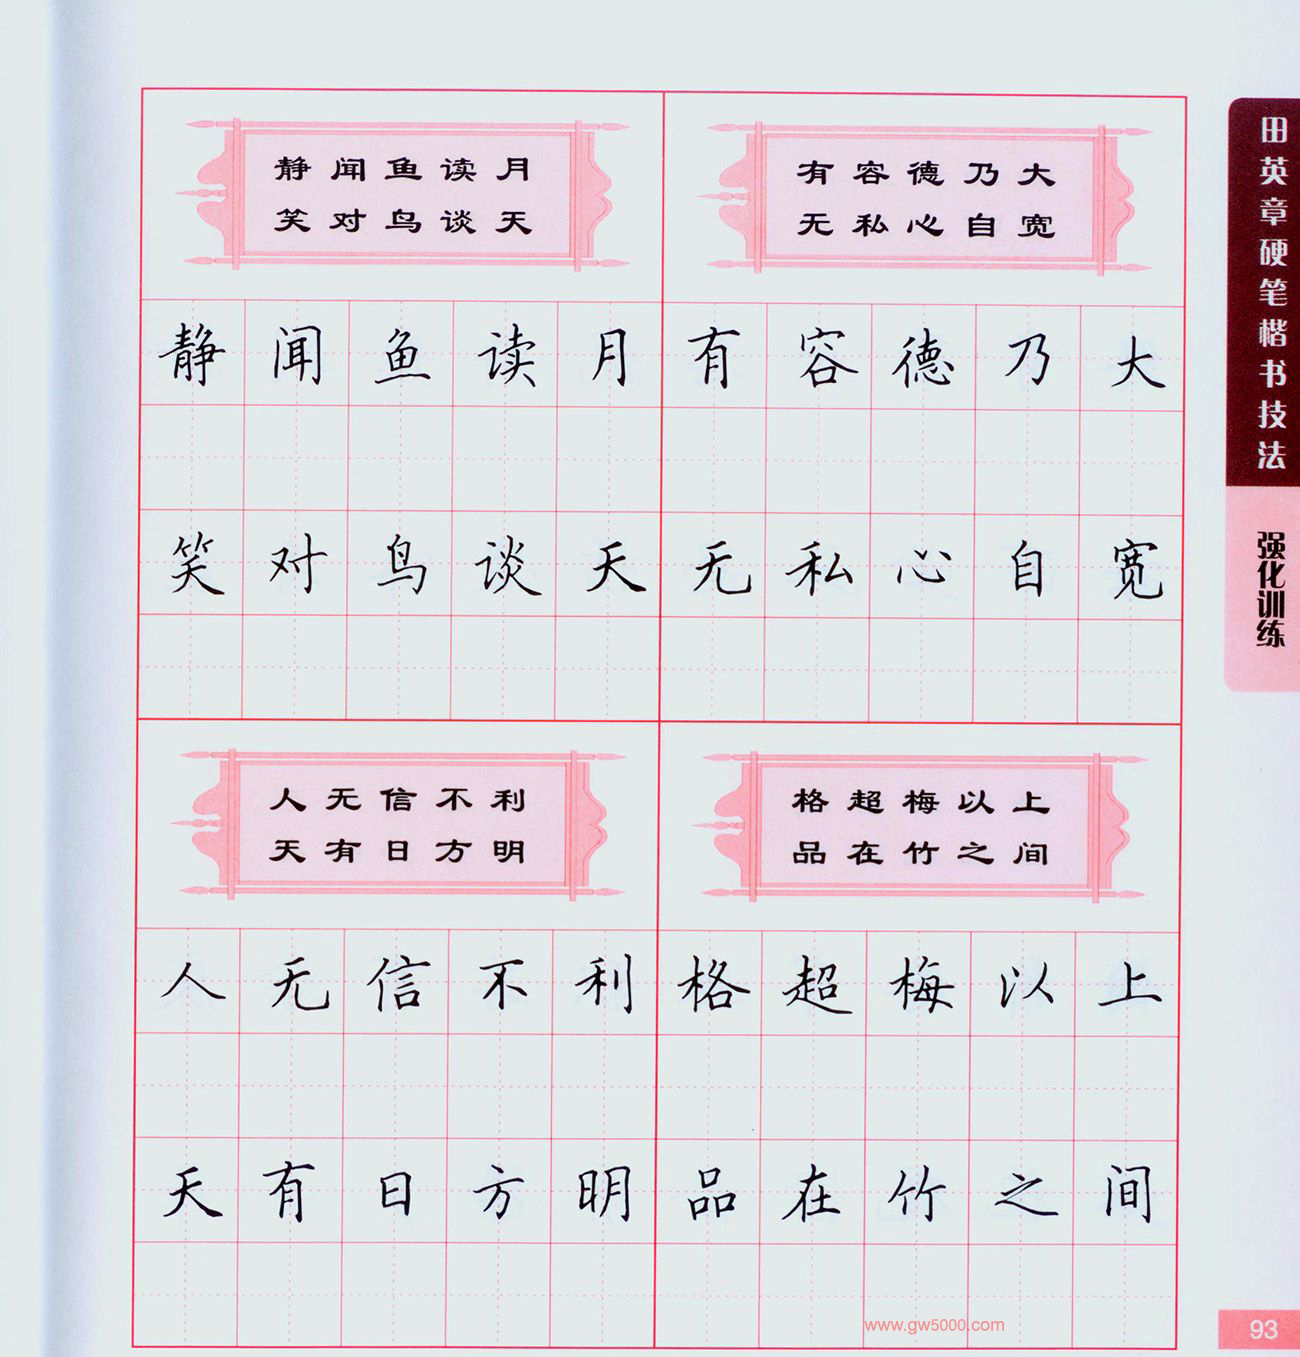 静闻鱼读月
笑对鸟谈天
有容德乃大
无私心自宽
静闻鱼读月
有容德乃大
笑对鸟谈天
无私心自宽
人无信不利
天有日方明
格超梅以上
品在竹之间
人无信不利
格超梅以上
天有日方明
品在竹之间
田英章硬笔楷书技法
强化训练
www.gw5000.com
93